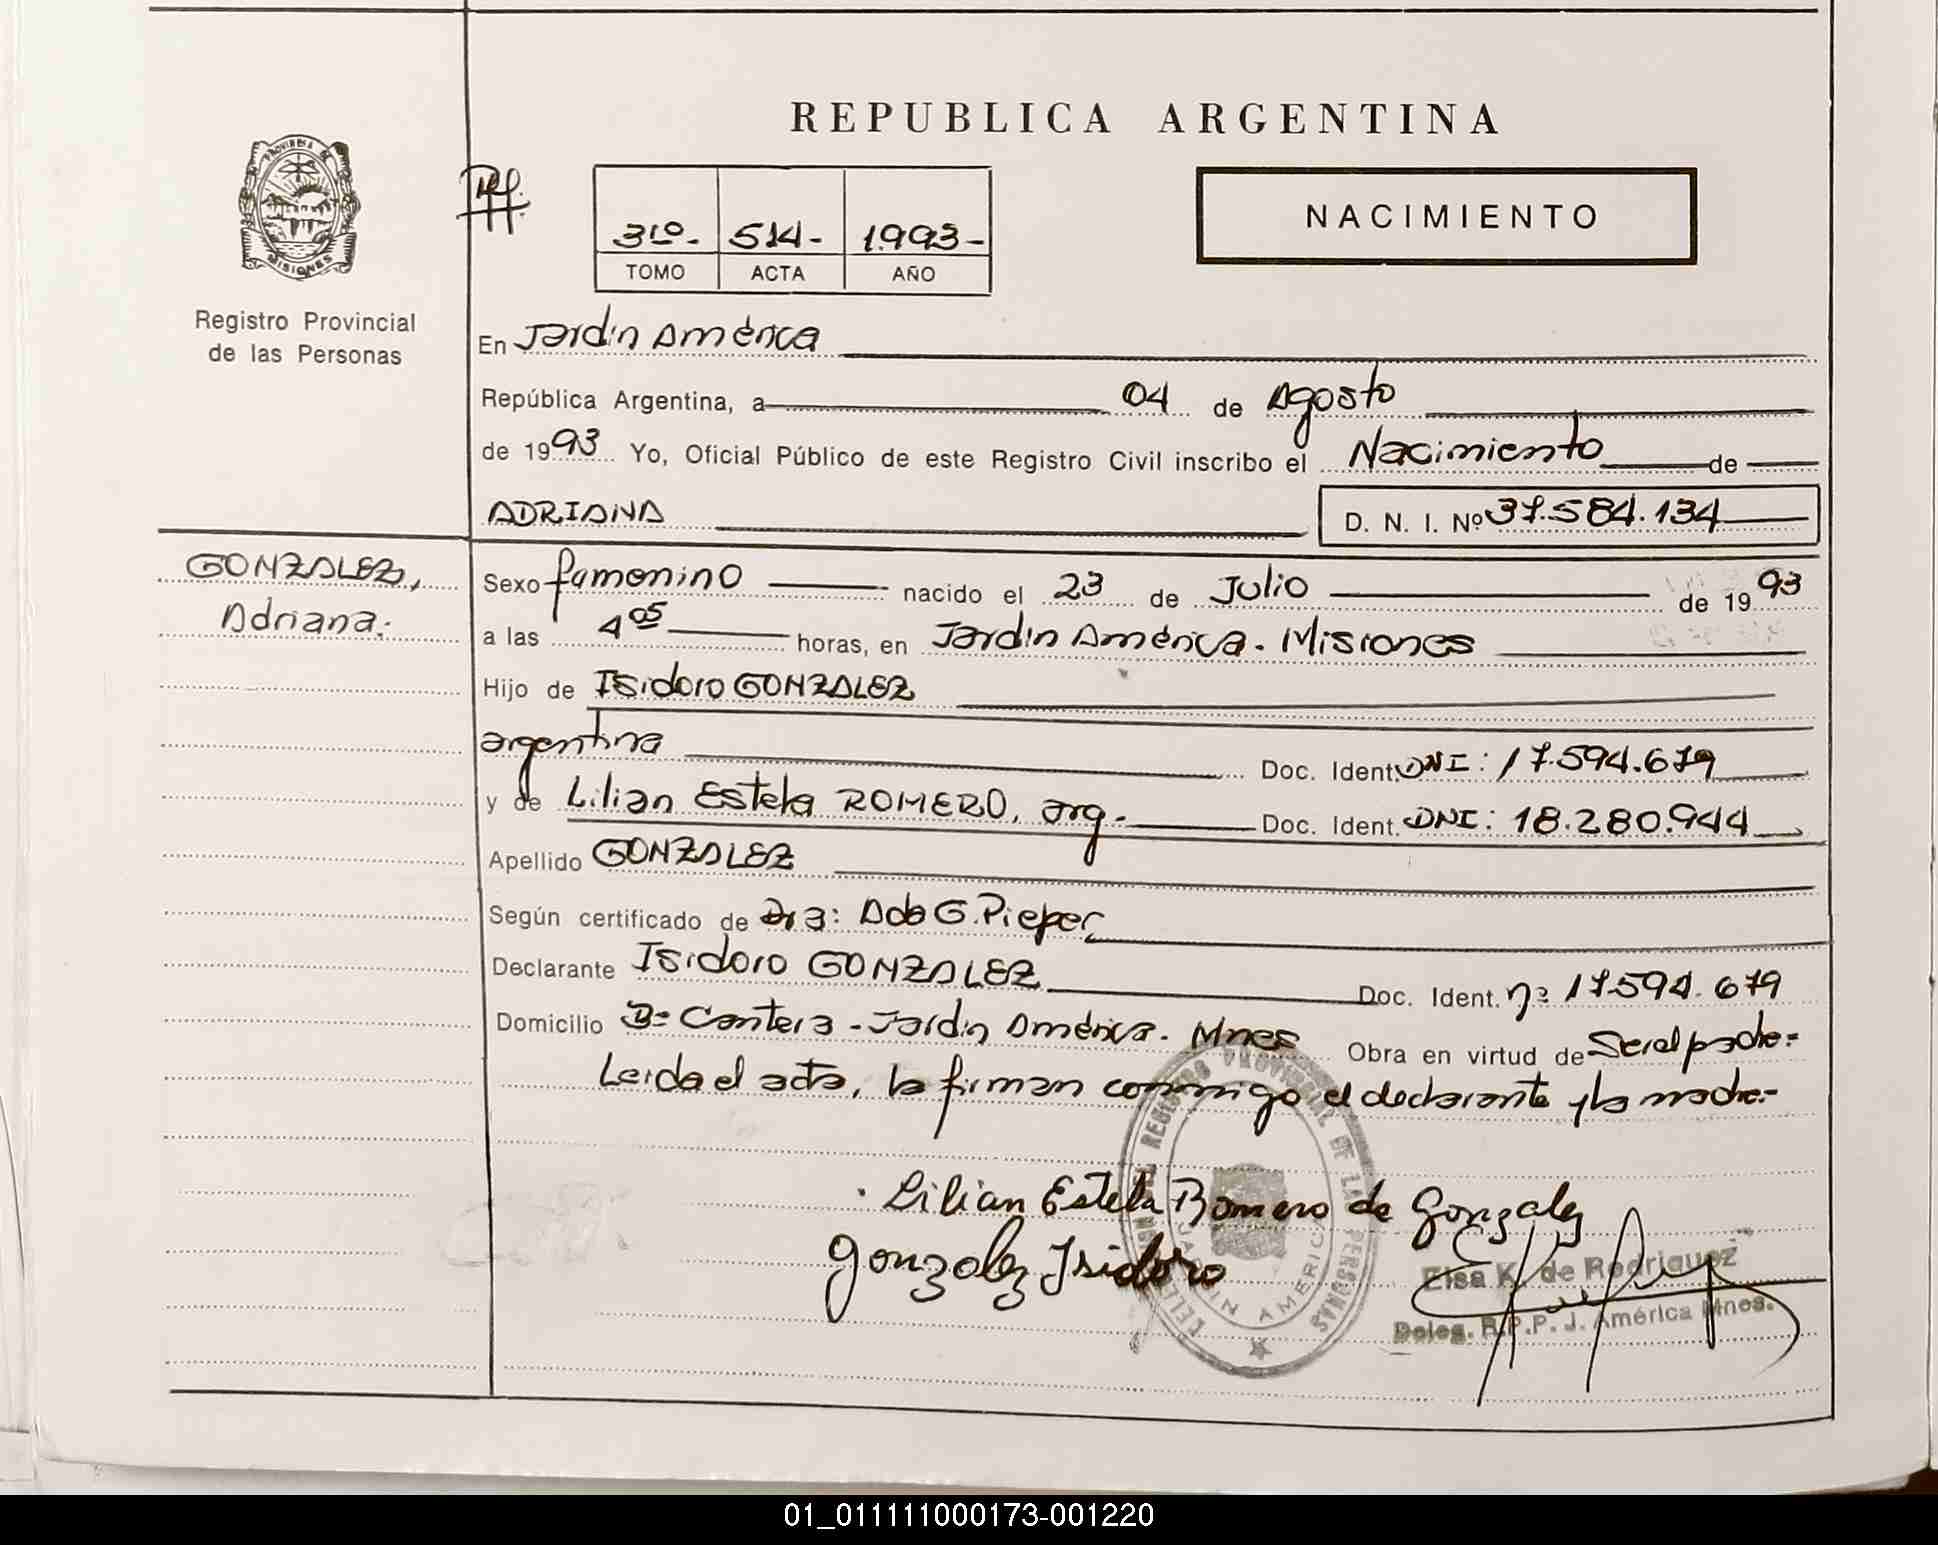 REPUBLICA ARGENTINA
PROVINCIA DE
MISIONES
Registro Provincial
de las Personas
3º.- 514- 1.993-
TOMO ACTA AÑO
NACIMIENTO
En Jardín América
República Argentina, a 04 de Agosto
de 1993 Yo, Oficial Público de este Registro Civil inscribo el Nacimiento de
ADRIANA D. N. I. Nº 37.584.134
GONZALEZ,
Adriana.-
Sexo famenino nacido el 23 de Julio de 19 93
a las 4 05 horas, en Jardín América. Misiones
Hijo de Isidoro GONZALEZ
argentina Doc. Ident. DNI: 17.594.679
y de Lilian Estela ROMERO, arg.- Doc. Ident. DNI: 18.280.944
Apellido GONZALEZ
Según certificado de Dra: Ada G. Pieper
Declarante Isidoro GONZALEZ Doc. Ident. nº 17.594.679
Domicilio Bº Cantera - Jardín América. Mnes Obra en virtud de Ser el padre.-
Leída el acta, la firman conmigo el declarante y la madre.-
Lilian Estela Romero de Gonzalez
Gonzalez Isidoro
REGISTRO PROVINCIAL DE LAS PERSONAS
JARDIN AMERICA
Elsa K. de Rodriguez
Deleg. R.P.P. J. América Mnes.
01_011111000173-001220